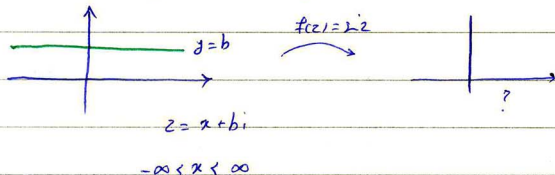 y=b
f(z)=2iz
?
z = x+bi
-∞ < x < ∞